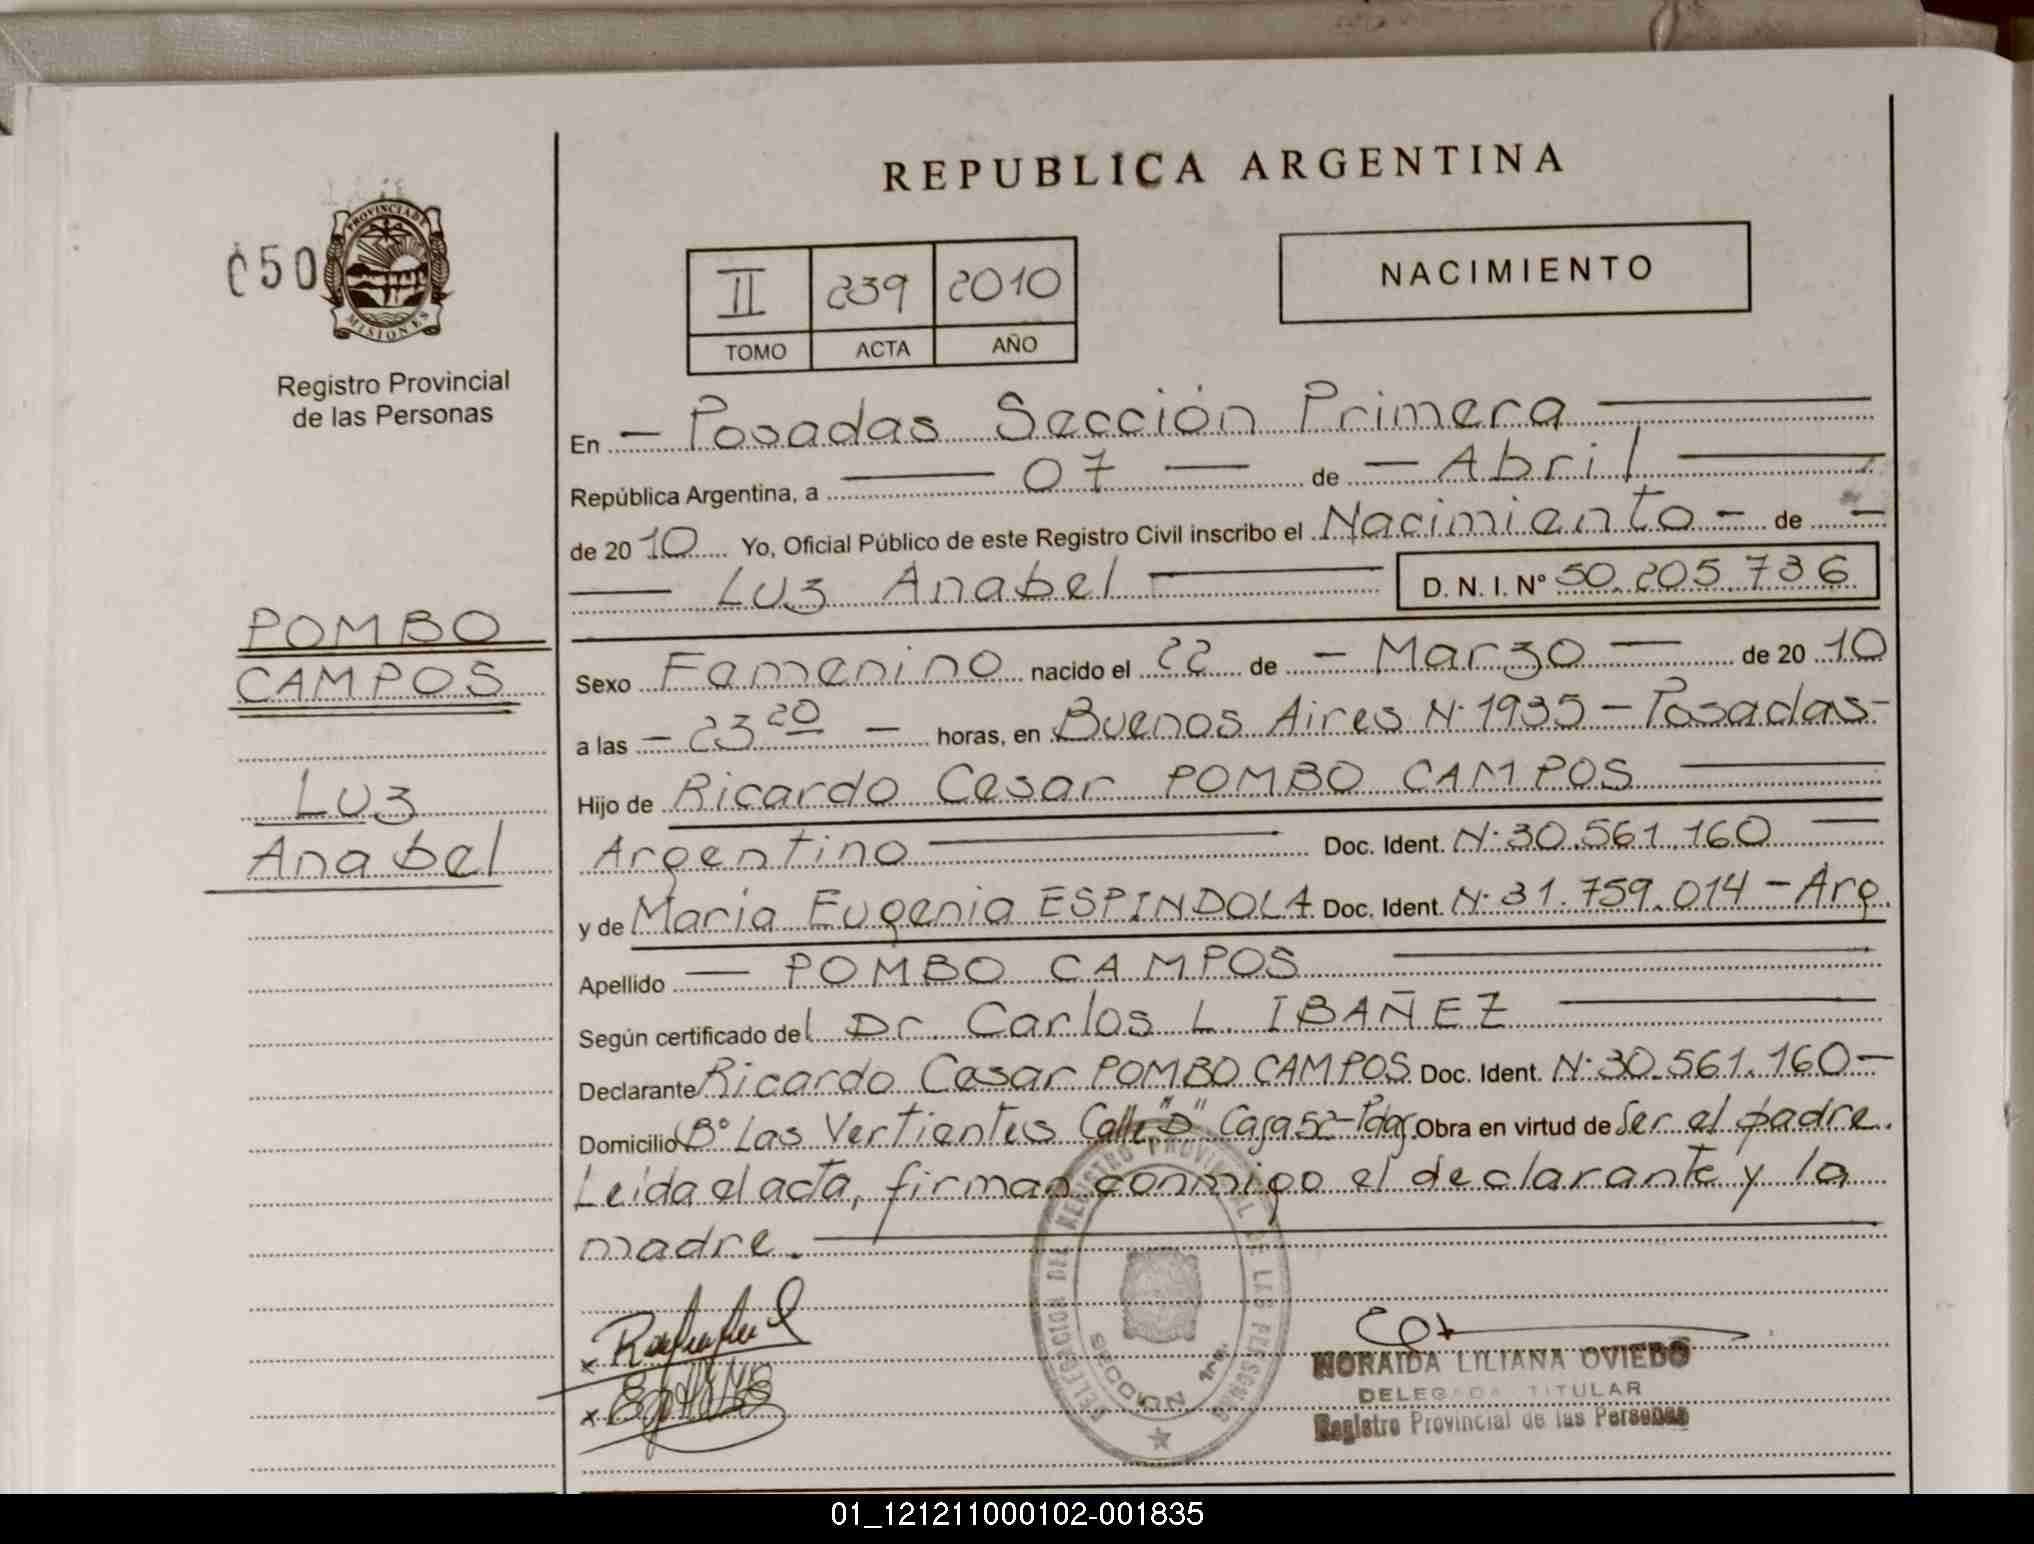 REPUBLICA ARGENTINA
PROVINCIA DE
MISIONES
Registro Provincial
de las Personas
NACIMIENTO
II 239 2010
TOMO ACTA AÑO
En - Posadas Sección Primera
República Argentina, a 07 de - Abril
de 20 10 Yo, Oficial Público de este Registro Civil inscribo el Nacimiento - de -
Luz Anabel D. N. I. N° 50.205.736
POMBO
CAMPOS
Luz
Anabel
Sexo Femenino nacido el 22 de - Marzo - de 20 10
a las - 23 20 - horas, en Buenos Aires N· 1935 - Posadas -
Hijo de Ricardo Cesar POMBO CAMPOS
Argentino Doc. Ident. N· 30.561.160
y de Maria Eugenia ESPINDOLA Doc. Ident. N· 31.759.014 - Arg.
Apellido - POMBO CAMPOS
Según certificado del Dr. Carlos L. IBAÑEZ
Declarante Ricardo Cesar POMBO CAMPOS Doc. Ident. N· 30.561.160 -
Domicilio B° Las Vertientes Calle "D" Casa 52 - Pdas Obra en virtud de Ser el padre.
Leida el acta, firman conmigo el declarante y la
madre.
DELEGACION DEL REGISTRO PROVINCIAL DE LAS PERSONAS
SECCION 1ra.
NORAIDA LILIANA OVIEDO
DELEGADA TITULAR
Registro Provincial de las Personas
01_121211000102-001835